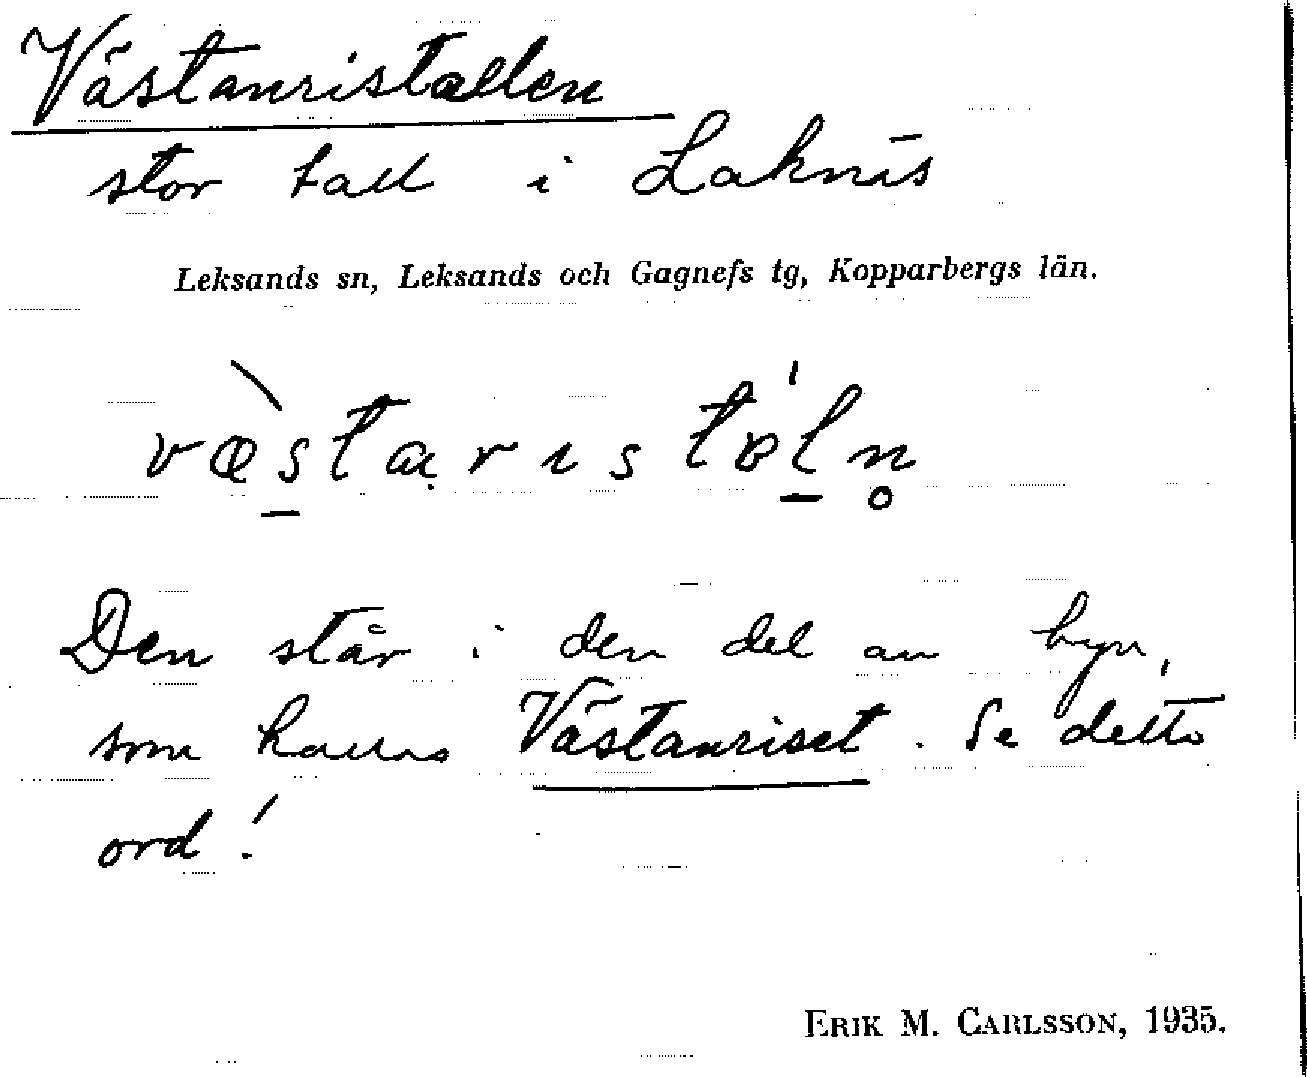 Västanristallen
stor tall i Laknäs
Leksands sn, Leksands och Gagnefs tg, Kopparbergs län.
Den står i den del av byn,
som kallas Västanriset. Se detta
ord!
ERIK M. CARLSSON, 1935.